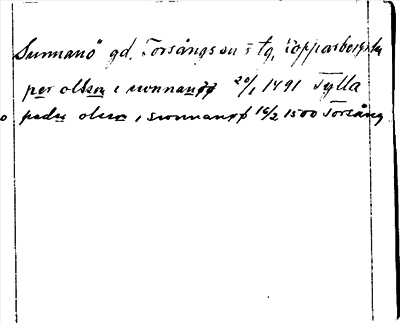 Sunnanö gd, Torsångs sn o tg, Kopparbergs län
per olsson i sunnanöö 20/1 1491 Tylla
o pedu olsson i sunnanöö 16/2 1500 Torsång